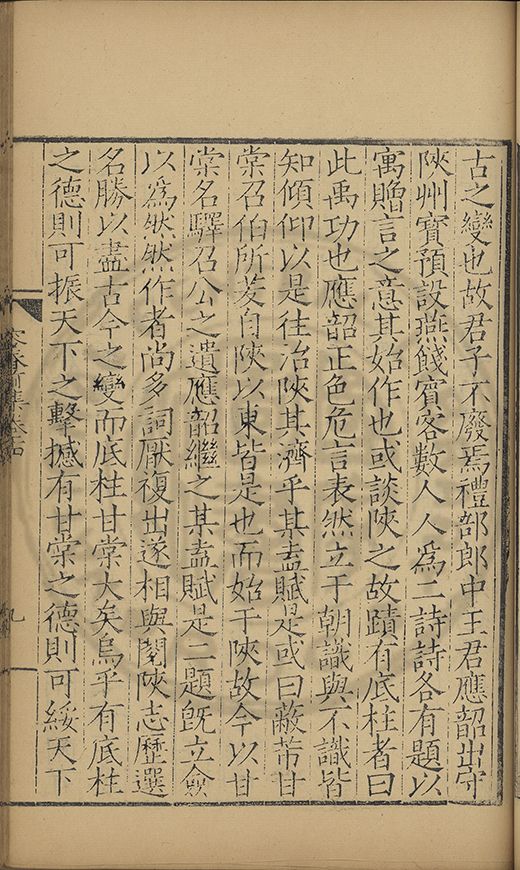 古之變也故君子不廢焉禮部郎中王君應韶出守
陝州寳預設燕餞賓客數人人爲二詩詩各有題以
寓贈言之意其始作也或談陝之故蹟有底柱者曰
此禹功也應韶正色危言表然立于朝識與不識皆
知傾仰以是往冶陝其濟乎某盍賦是或曰蔽芾甘
棠召伯所茇自陝以東皆是也而始于陝故今以甘
棠名驛召公之遺應韶繼之某盍賦是二題旣立僉
以爲然然作者尚多詞厭複出遂相與閱陝志歷選
名勝以盡古今之變而底柱甘棠大矣烏乎有底柱
之德則可振天下之擊撼有甘棠之德則可綏天下
容春前集卷十四
九